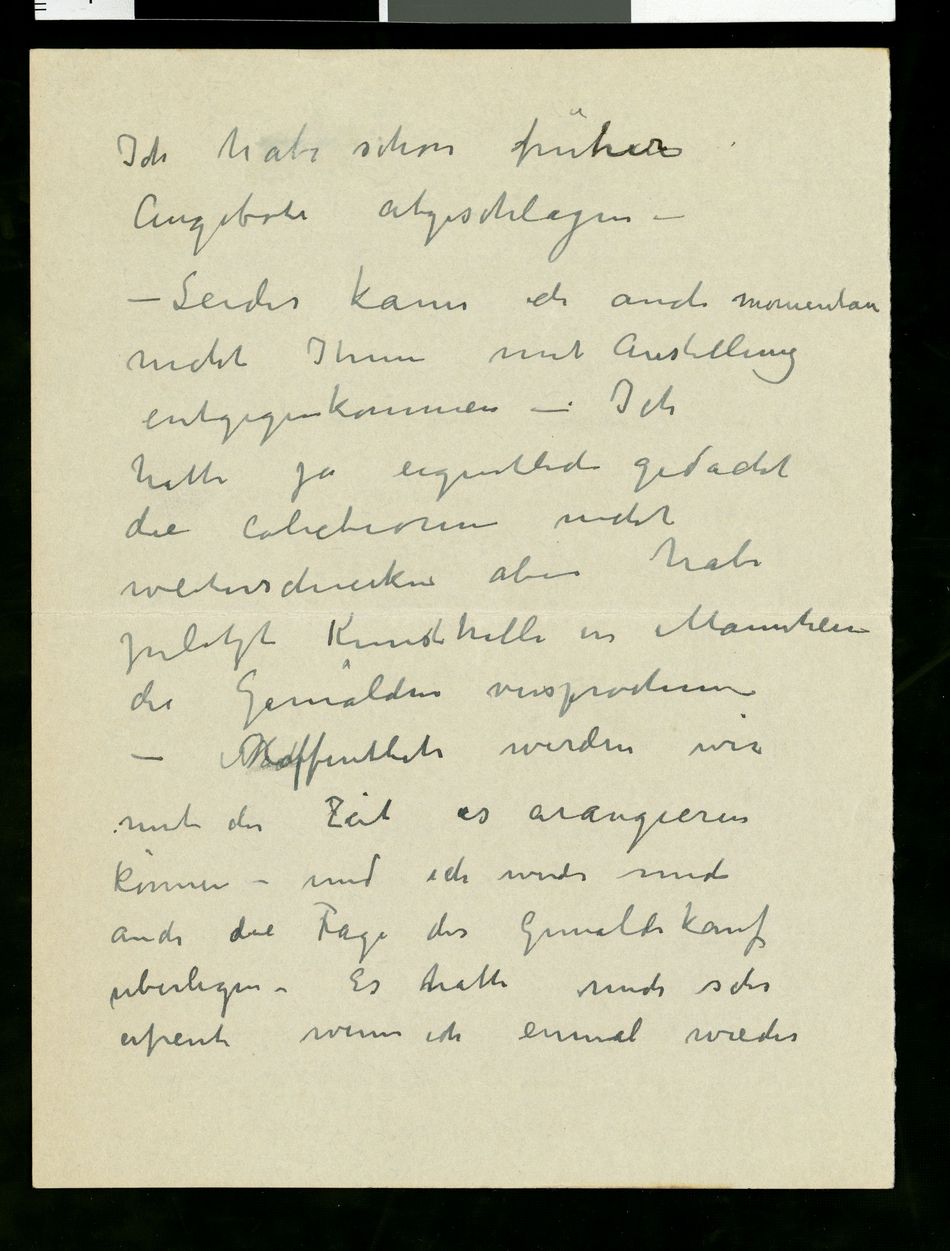 Ich habe schon früher
Angebote abgeschlagen –
– Leider kann ich auch momentan
nicht Ihnen mit Austellung
entgegenkommen – Ich
hatte ja eigentlich gedacht
die Colectionen nicht
weiterschicken aber habe
zuletzt Kunsthalle in Mannheim
die Gemälden versprochen
– Hoffentlich werden wir
mit der Zeit es arangieren
können – und ich werde mich
auch die Frage des Gemäldekauf
uberlegen – Es hatte mich sehr
erfreut wenn ich einmal wieder